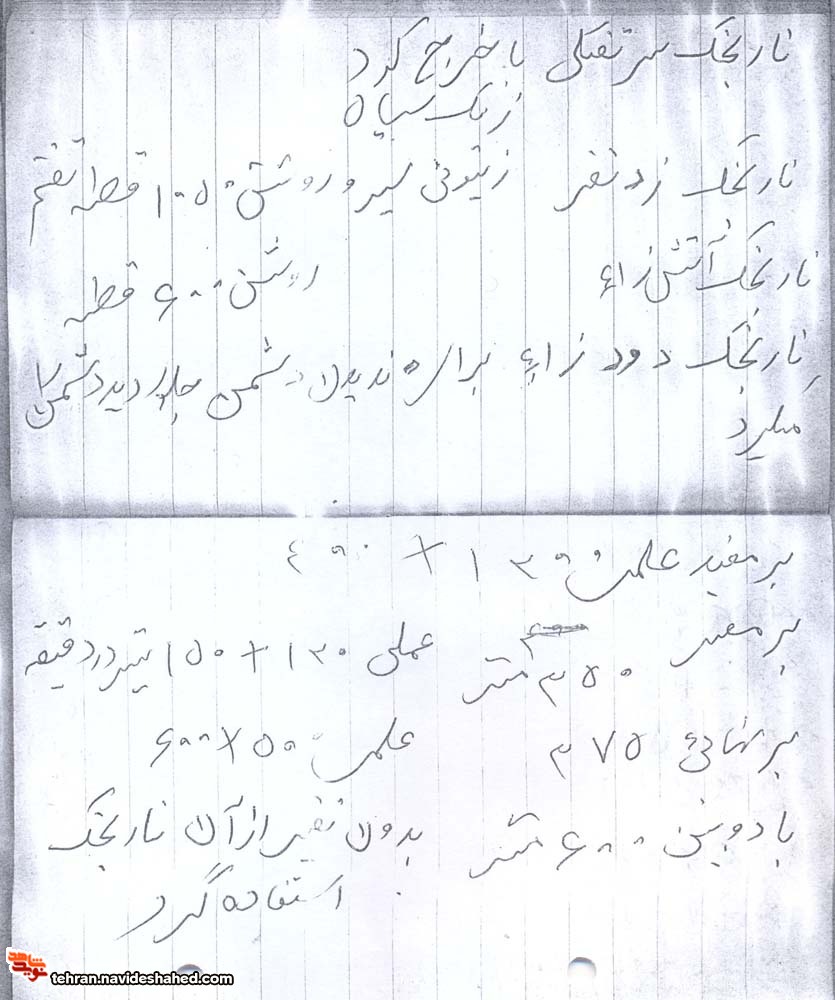 نارنجک سر تفنگی با خرج گود
رنگ سیاه
نارنجک زد نفر زیتونی سیر و روشن ۱۰۵۰ قطعه
نارنجک آتش زاء روشن ۶۰۰ قطعه
نارنجک دود زاء برای ندیدن دشمن جلو دید دشمن را
میگرد
بر مفید علمی ۱۳۰۰ + ۴۰۰
بر مفید ۳۵۰ متر عملی ۱۳۰ + ۱۵۰ تیر در دقیقه
بر نهائی ۳۷۵ علمی ۶۰۰
با دوبین ۶۰۰ متر بدون نفیر از آن نارنجک
استفاده گرد
نوید شاهد
tehran.navideshahed.com